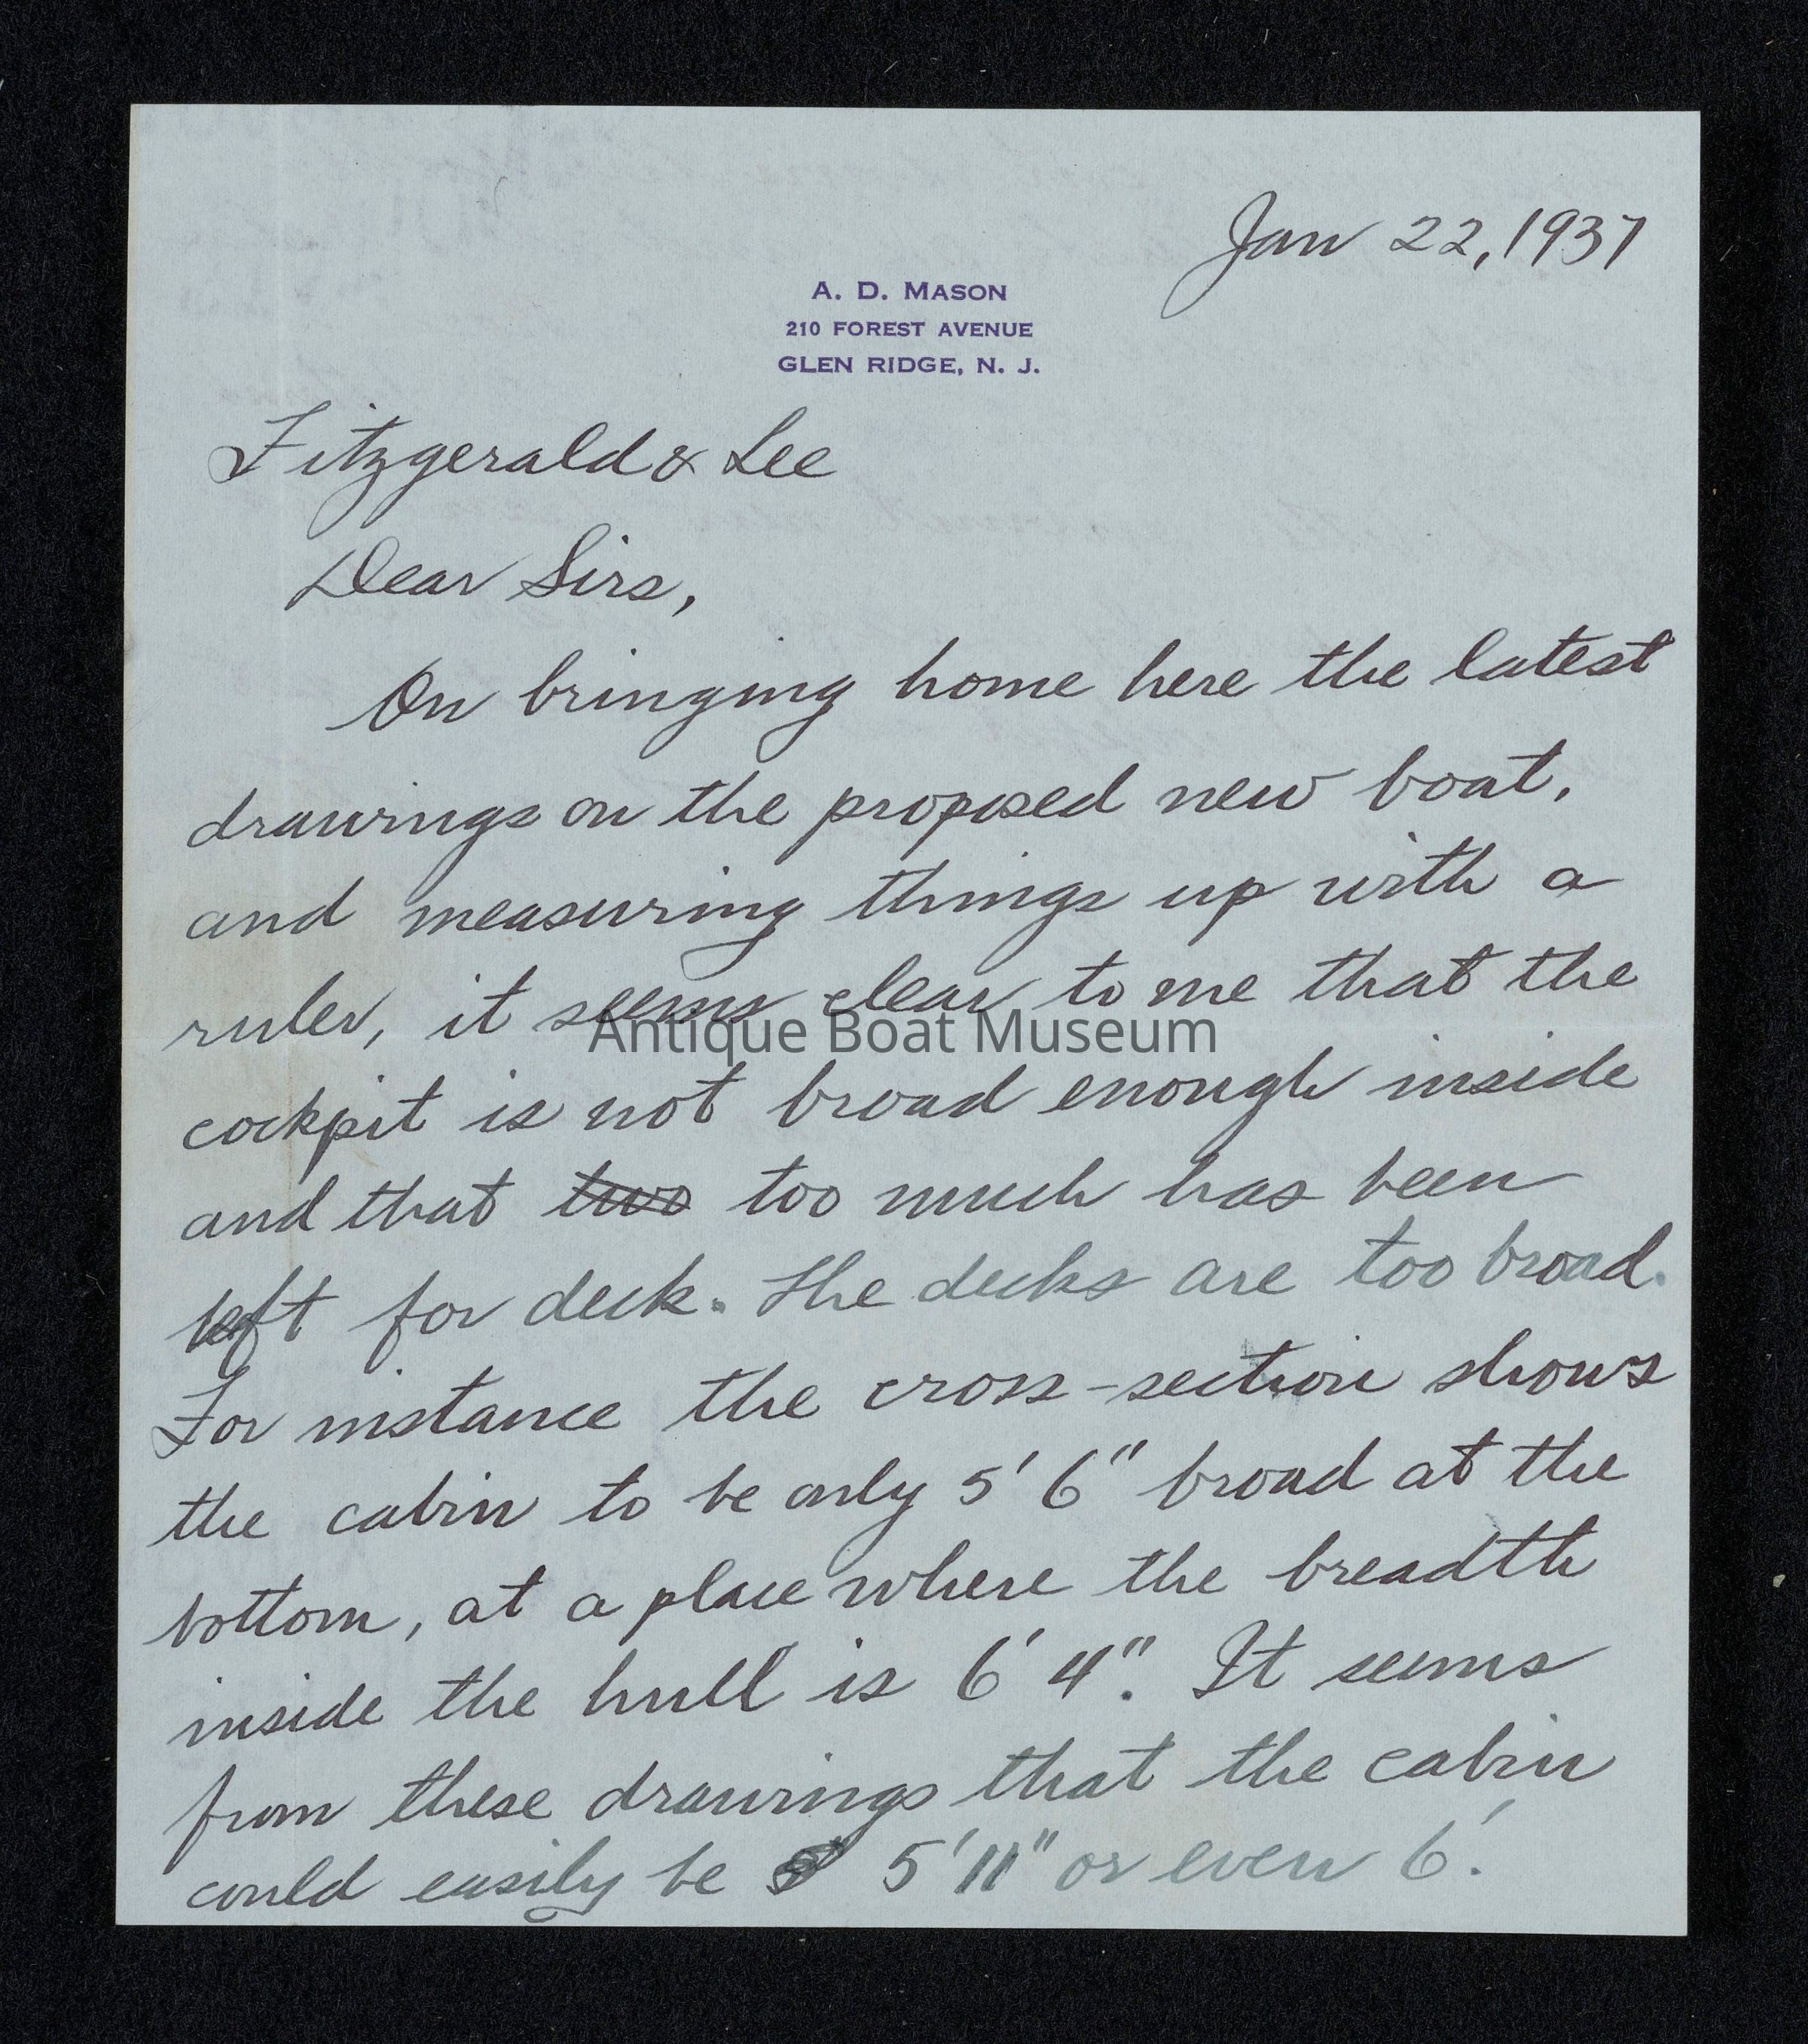 Jan 22, 1937
A. D. MASON
210 FOREST AVENUE
GLEN RIDGE, N. J.
Fitzgerald & Lee
Dear Sirs,
On bringing home here the latest
drawings on the proposed new boat,
and measuring things up with a
ruler, it seems clear to me that the
Antique Boat Museum
cockpit is not broad enough inside
and that two too much has been
left for deck. The decks are too broad.
For instance the cross-section shows
the cabin to be only 5' 6" broad at the
bottom, at a place where the breadth
inside the hull is 6' 4". It seems
from these drawings that the cabin
could easily be 5' 11" or even 6'.